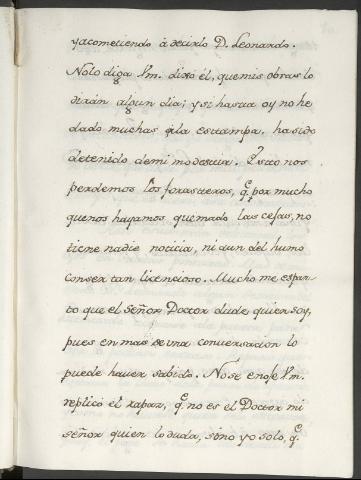 yacometiendo à decirlo D. Leonardo.
Nolo diga Vm. dixo él, quemis obras lo
dirán algun dia; ysi hasta oy no he
dado muchas ála estampa, ha sido
detenido demi modestia. Esto nos
perdemos los forasteros, q.e por mucho
quenos hayamos quemado las cejas, no
tiene nadie noticia, ni aun del humo
conser tan licencioso. Mucho me espan-
to que el señor Doctor dude quien soy,
pues en mas de una conversacion lo
puede haver sabido. Nose enoje Vm.
replicó el rapaz, q.e no es el Doctor mi
señor quien lo duda, sino yo solo, q.e